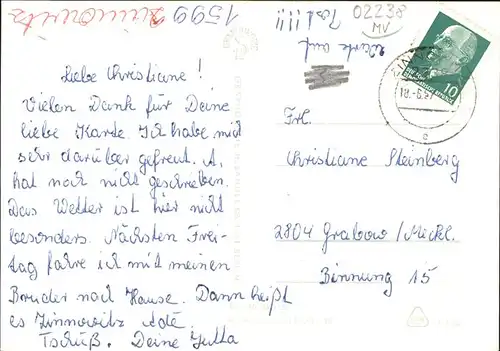 Zinnowitz
1599
02238
MV
Warte auf
Post!!!!
10
18.-6.
Liebe Christiane!
Vielen Dank für Deine
liebe Karte. Ich habe mich
sehr darüber gefreut. A.
hat noch nicht geschrieben.
Das Wetter ist hier nicht
besonders. Nächsten Frei-
tag fahre ich mit meinen
Bruder nach Hause. Dann heißt
es Zinnowitz Adé
Tschüß. Deine Jutta
Frl.
Christiane Steinberg
2804 Grabow/Meckl.
Binnung 15